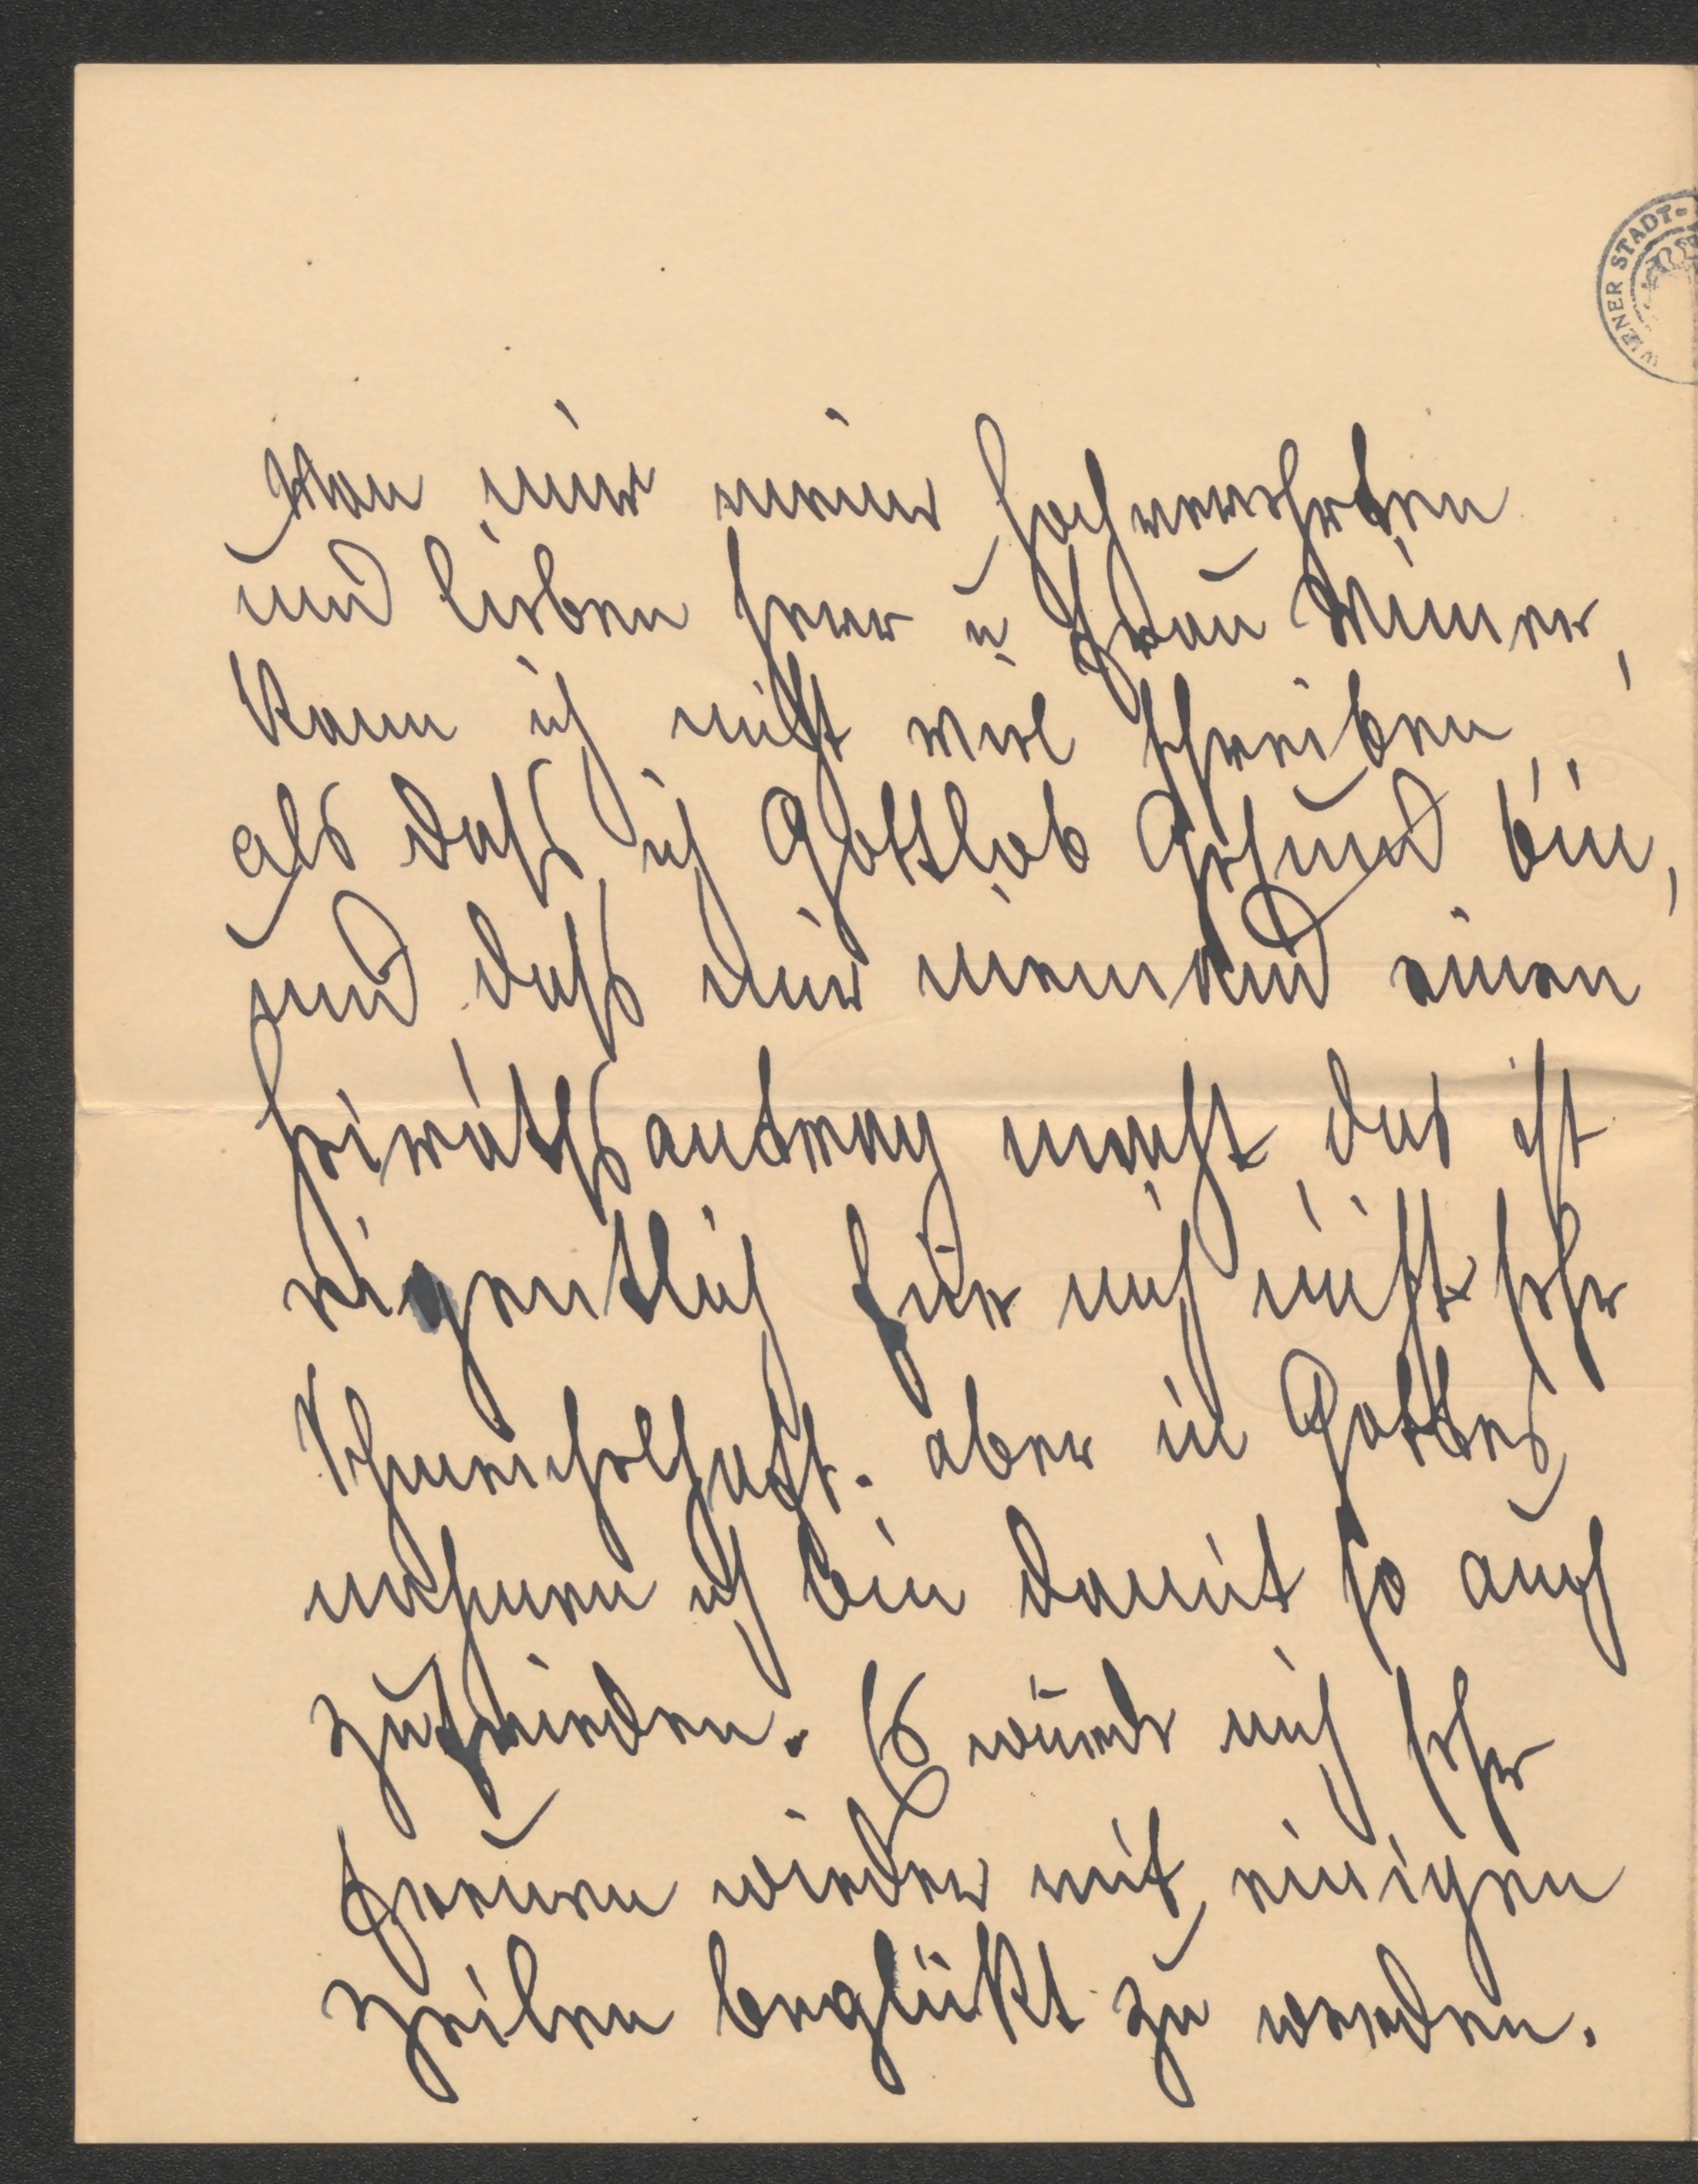 WIENER STADT-
Von mir meine Hochverehrten
und lieben Herr u Frau
kann ich nicht viel schreiben
als daß ich Gottlob Gesund bin,
und daß mir niemand einen
Heirathsantrag macht, das ist
eigentlich für mich nicht sehr
Schmeichelhaft. aber in Gottes
nahmen ich bin damit so auch
zufrieden. Es würde mich sehr
freuen wieder mit einigen
Zeilen beglükt zu werden.